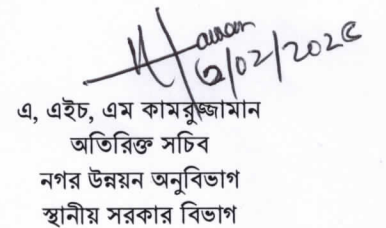 ৬/০২/২০২৫
এ, এইচ, এম কামরুজ্জামান
অতিরিক্ত সচিব
নগর উন্নয়ন অনুবিভাগ
স্থানীয় সরকার বিভাগ